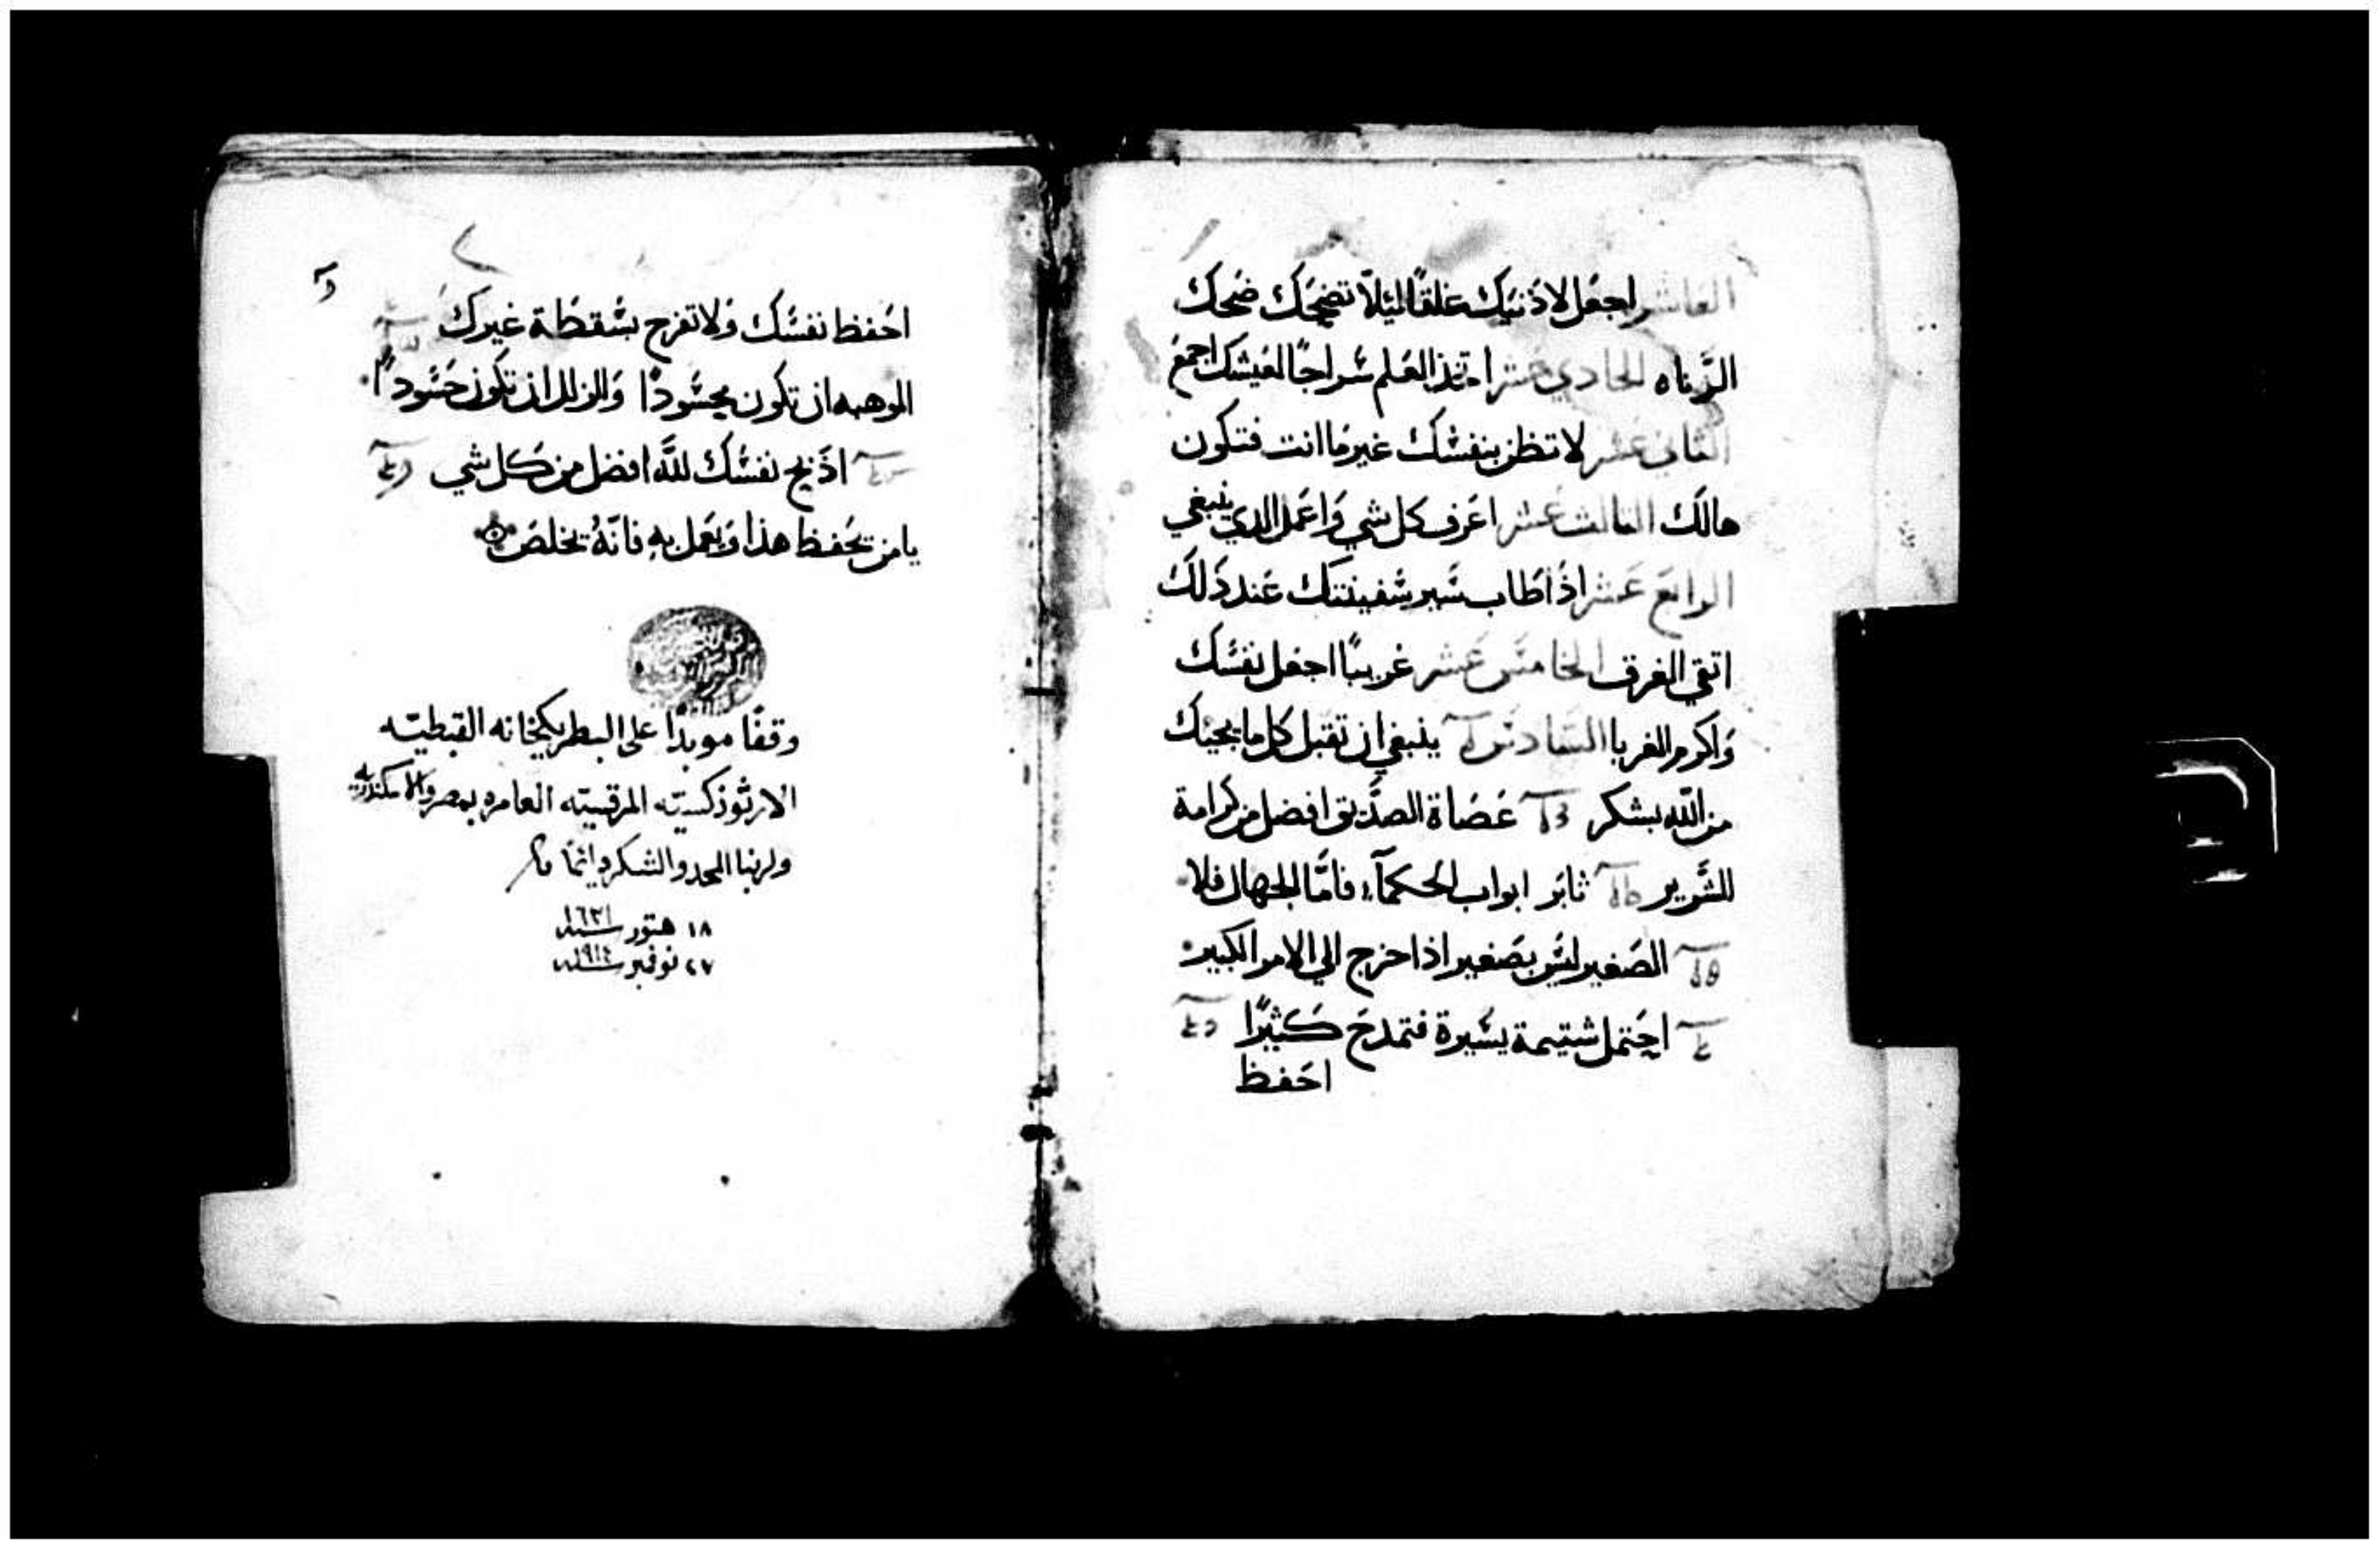 العاشر اجعل لاذنيك غلقًا ليلّا تضحَك ضَحك
الزناه الحادي عشر اتخذ العَلم سَراجًا لعَيشك اجمعَ
الثاني عشر لا تظن بنفسَك غير مَا انت فتكون
هالَك الثالث عَشر اعَرف كل شي وَاعَمل الدي ينبغي
الرابعَ عَشر اذا طَاب سَير سَفينتك عَند دَلك
اتقي الغرق الخامسَ عَشر غريبًا اجعل نفسَك
وَاكرم الغربا السَادسَ ينبغي ان تقبل كل ما يجيك
من اللَّه بشكر عَصَاة الصدَيق افضل من كرامة
الشَرير ثابَر ابواب الحَكمَآء فامَّا الجهال فلا
الصَغير ليسَ بصَغير اذا خرج الي الامر الكبير
احَتمل شتيمة يسَيرة فتمدحَ كَثيرًا
احَفظ
احَفظ نفسَك وَلا تفرح بسَقطَة غيرك
الموهبه ان تكون محسَودًا وَالزلل ان تكون حَسَودًا
اذَبح نفسَك للَّه افضل من كَل شي
يا من يحَفظ هذا وَيعَمل بهِ فانّهُ يخلصَ
وقفًا موبدًا على البطريكخانه القبطيّه
الارثوذكسيّه المرقسيّه العامره بمصر والاسكندريه
ولربنا المجد والشكر دايمًا
١٨ هتور سنة ١٦٣١
٢٧ نوفمبر سنة ١٩١٤